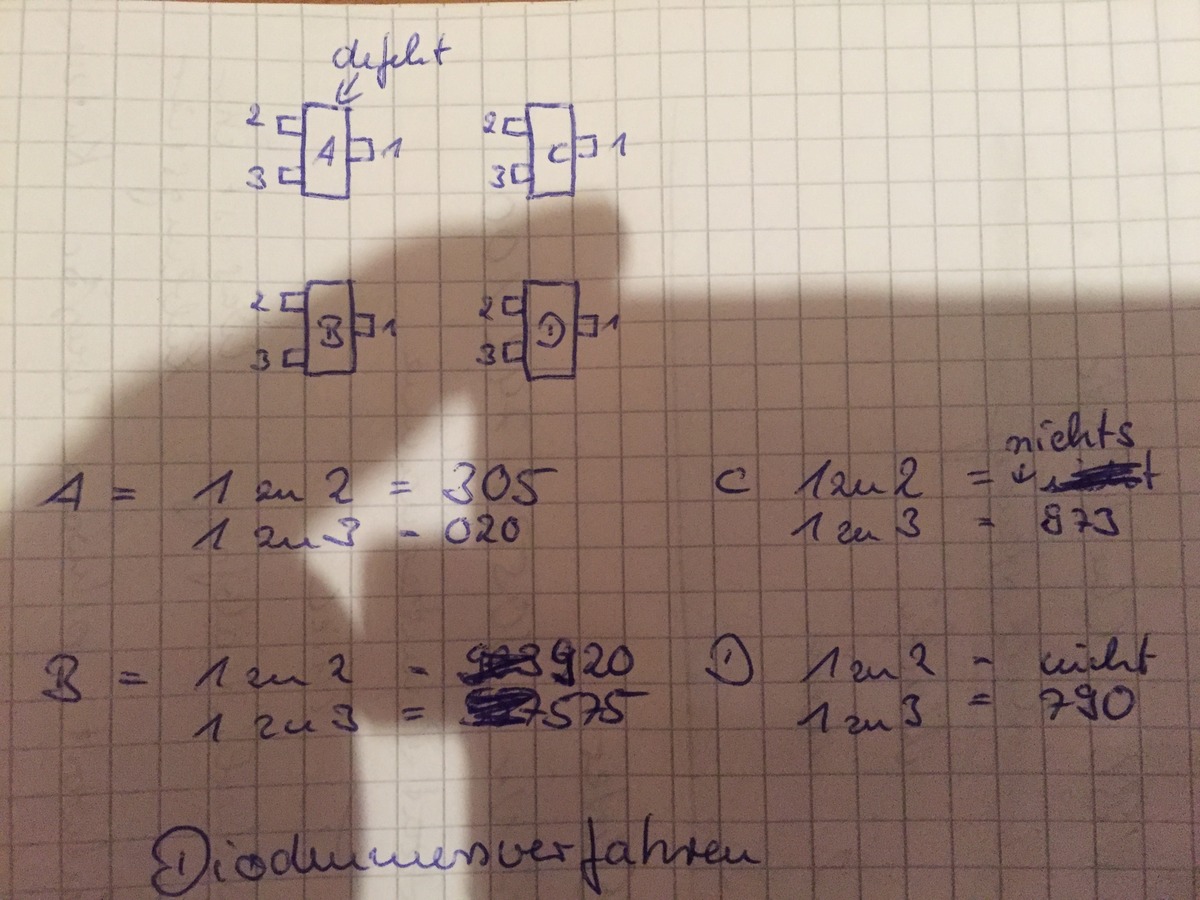 defekt
2 A 1
3
2 C 1
3
2 B 1
3
2 D 1
3
A = 1 zu 2 = 305
1 zu 3 = 020
nichts
C 1 zu 2 =
1 zu 3 = 873
B = 1 zu 2 = 920
1 zu 3 = 575
D 1 zu 2 = nicht
1 zu 3 = 790
Diodenmessverfahren